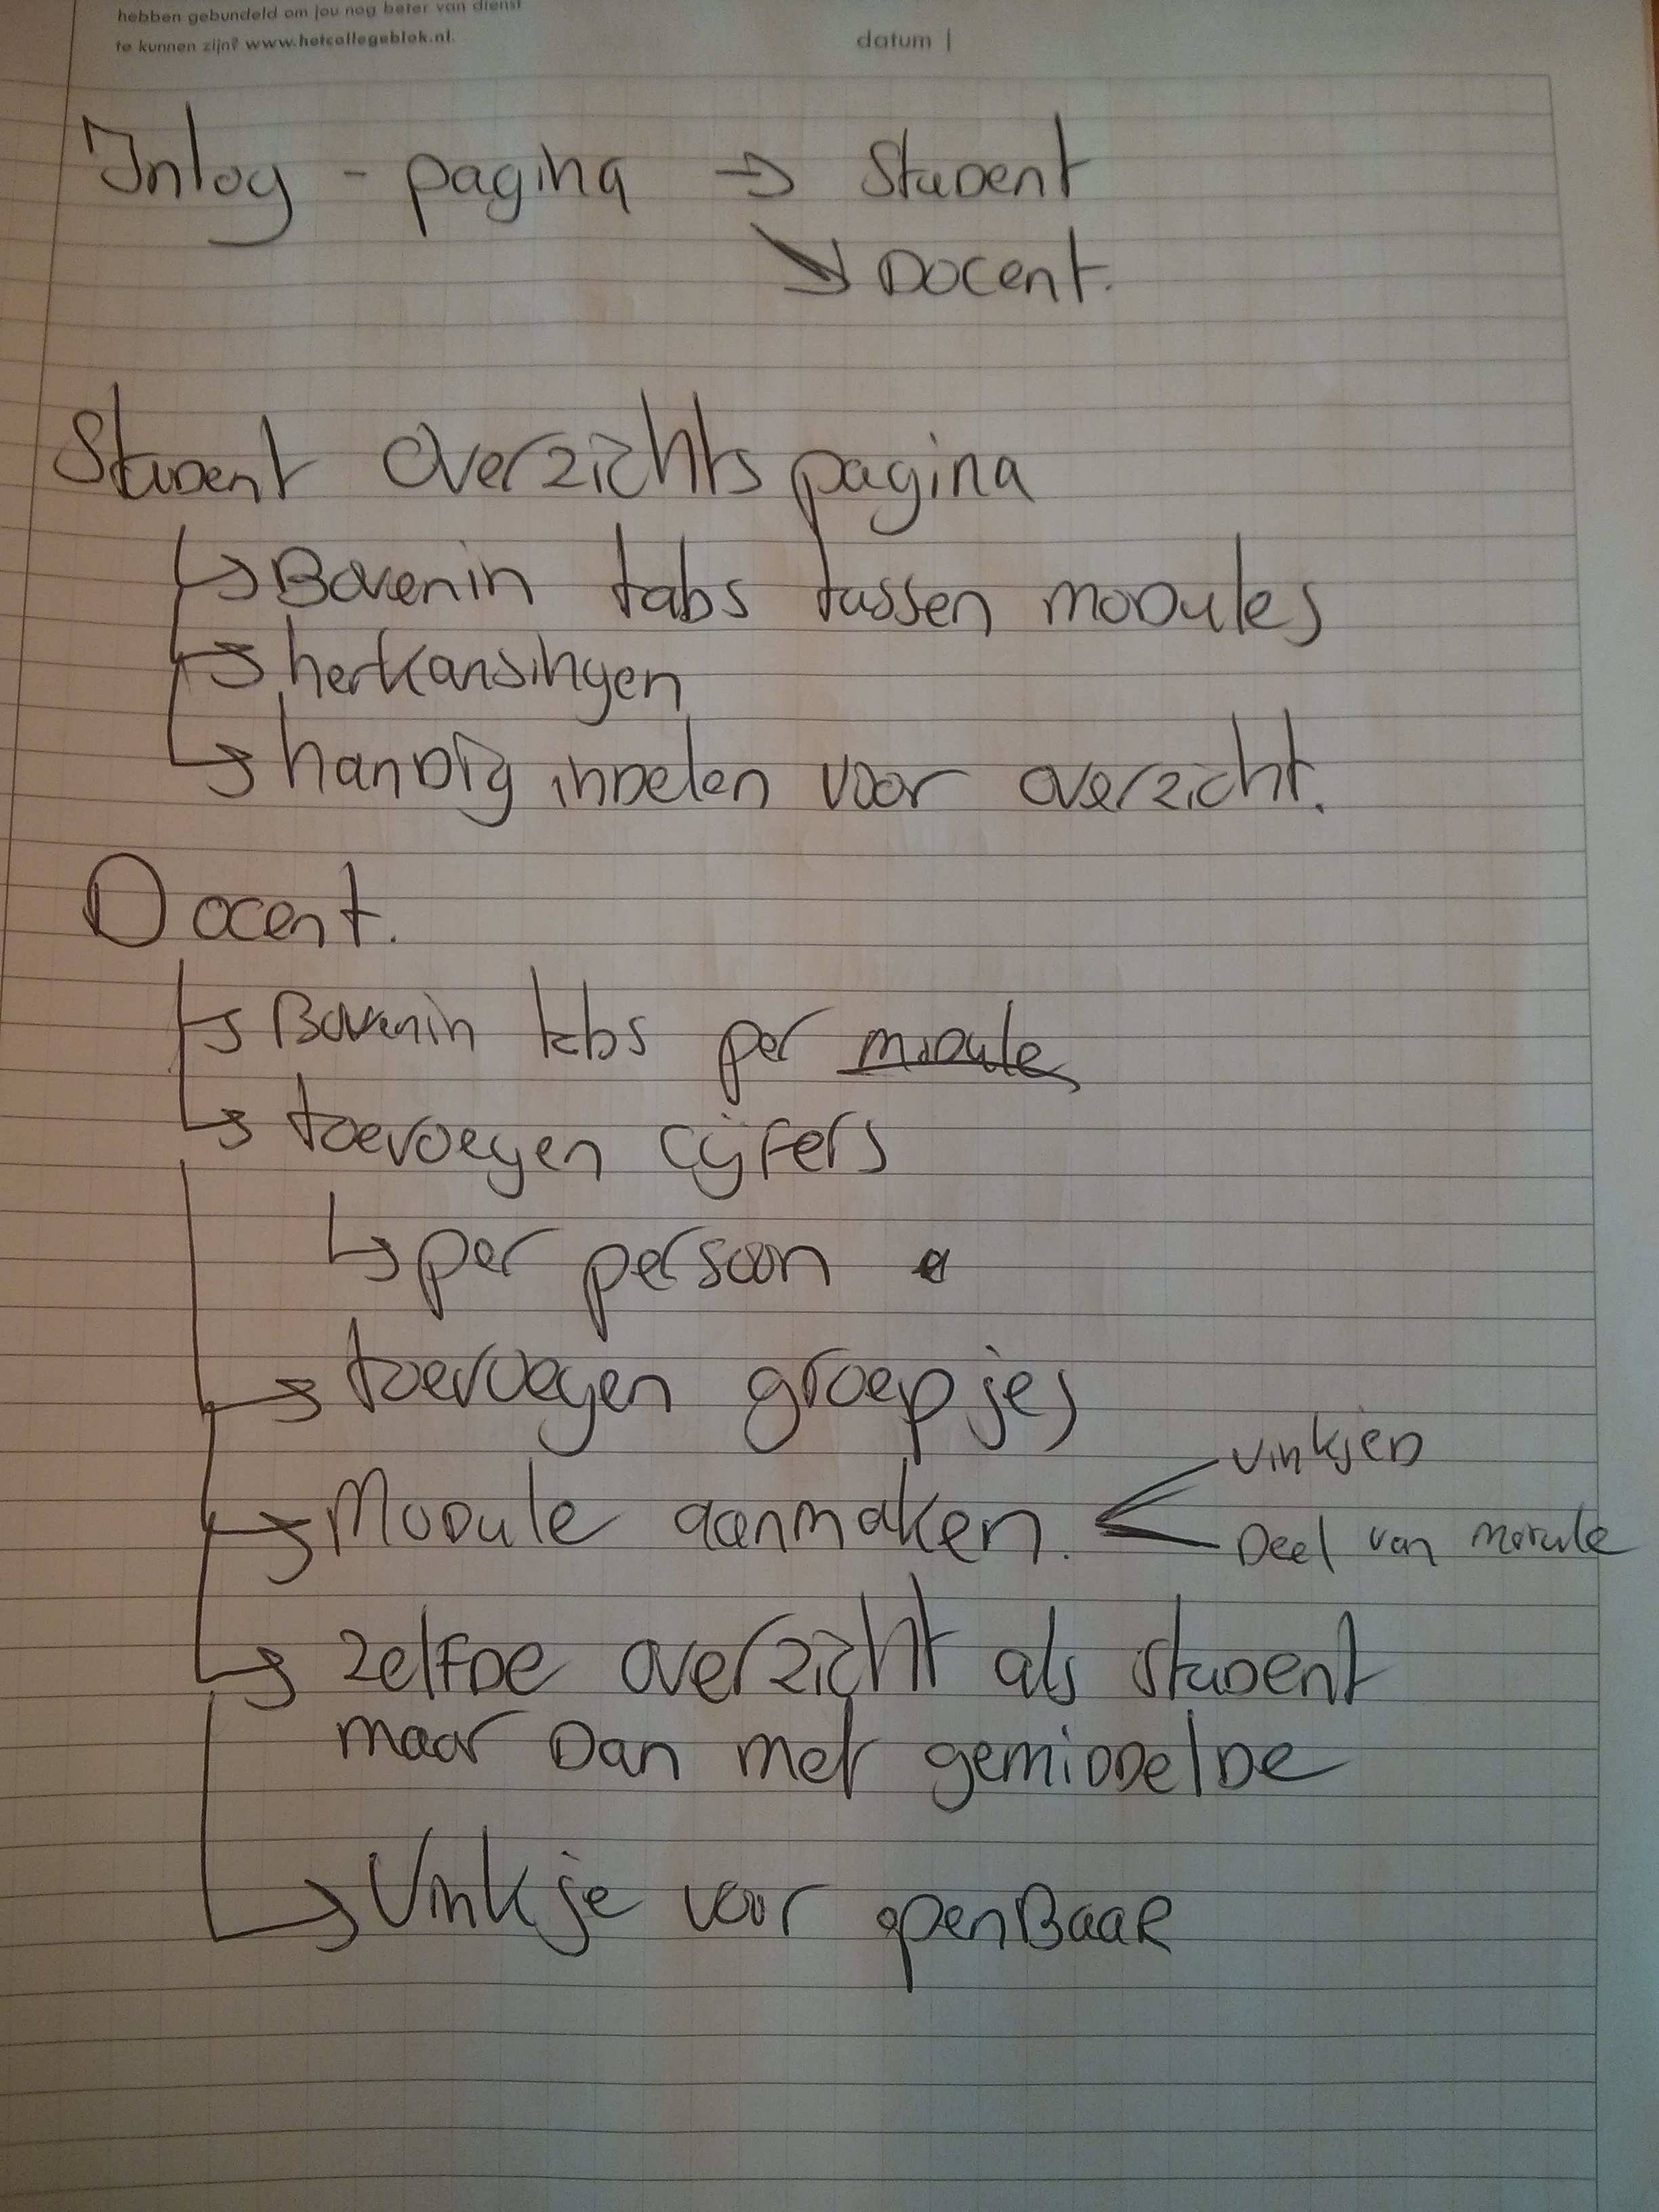 hebben gebundeld om jou nog beter van dienst
te kunnen zijn? www.hetcollegeblok.nl.
datum |
Inlog - pagina → Student
↘ Docent.
Student overzichts pagina
↳ Bovenin tabs tussen modules
↳ herkansingen
↳ handig indelen voor overzicht.
Docent.
↳ Bovenin tabs per module
↳ toevoegen cijfers
↳ per persoon
↳ toevoegen groepjes
↳ Module aanmaken.
vinkjes
Deel van module
↳ zelfde overzicht als student
maar dan met gemiddelde
↳ Vinkje voor openBaaR